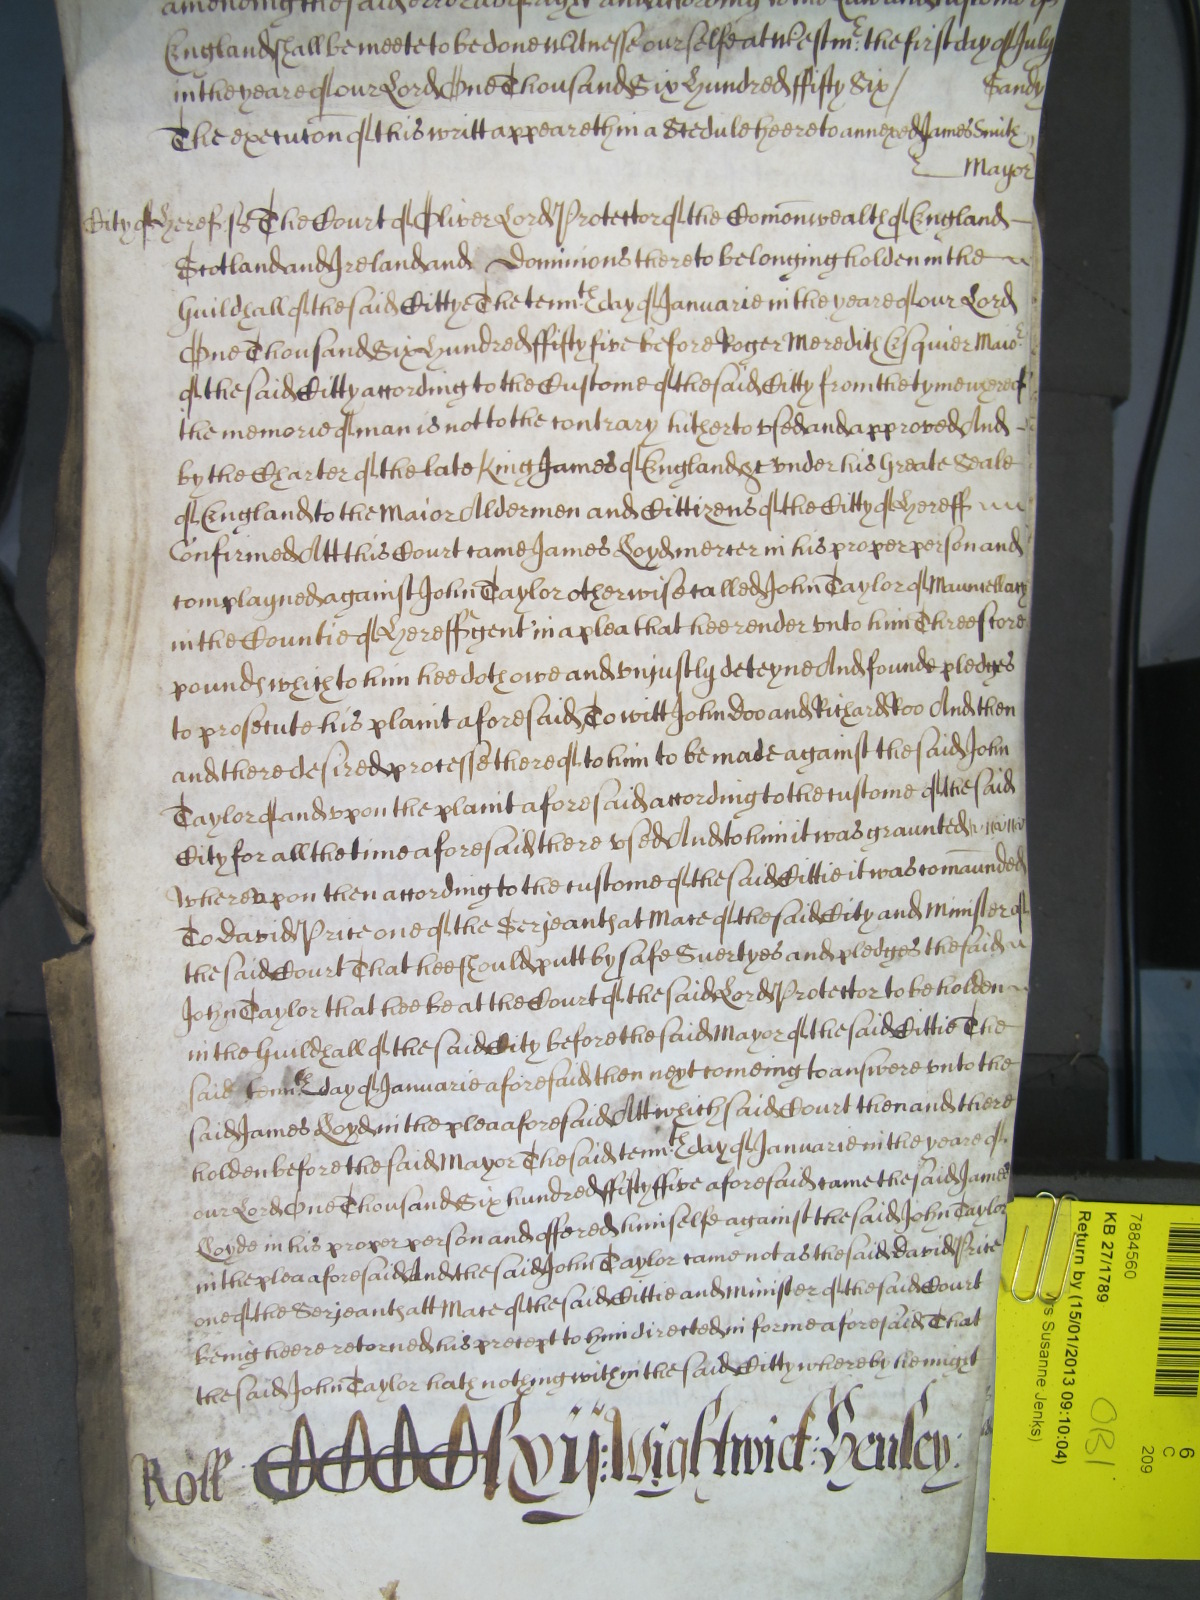 amending the said error
England shall be meete to be done Witnesse our selfe at Westmr. the first day of July
in the yeare of our Lord One Thousand Six Hundred ffifty Six / Gandy
The execucon of this writt appeareth in a Scedule heereto annexed James Smith
Mayor
City of Heref: ss The Court of Oliver Lord Protector of the Comonwealth of England
Scotland and Ireland and Dominions thereto belonging holden in the
Guildhall of the said Cittye The tennth day of Januarie in the yeare of our Lord
One Thousand Six Hundred ffifty five before Roger Meredith Esquier Maior
of the said Citty according to the Custome of the said Citty from the tyme wereof
the memorie of man is not to the contrary hitherto vsed and approved And
by the Charter of the late King James of England &c vnder his Greate Seale
of England to the Maior Aldermen and Cittizens of the Citty of Hereff
Confirmed Att this Court came James Loyd mercer in his proper person and
complayned against John Taylor otherwise called John Taylor of
in the Countie of Hereff gent' in a plea that hee render vnto him Threescore
pounds which to him hee doth owe and vniustly deteyne And founde pledges
to prosecute his plaint aforesaid To witt John Doo and Richard Roo And then
and there desired processe thereof to him to be made against the said John
Taylor of and vpon the plaint aforesaid according to the custome of the said
City for all the time aforesaid there vsed And to him it was graunted
Wherevpon then according to the custome of the said Cittie it was comaunded
To David Price one of the Serjeants at Mace of the said City and Minister of
the said Court That hee should putt by safe Suertyes and pledges the said
John Taylor that hee be at the Court of the said Lord Protector to be holden
in the Guildhall of the said City before the said Mayor of the said Cittie The
said tennth day of Januarie aforesaid then next comeing to answere vnto the
said James Loyd in the plea aforesaid Att which said Court then and there
holden before the said Mayor The said tennth day of Januarie in the yeare of
our Lord One Thousand Six hundred ffifty ffive aforesaid came the said James
Loyde in his proper person and offered himselfe against the said John Taylor
in the plea aforesaid And the said John Taylor came not as the said David Price
one of the Serjeants att Mace of the said Cittie and Minister of the said Court
being heere retorned his precept to him directed in forme aforesaid That
the said John Taylor hath nothing within the said Citty whereby he might
Roll CCCClxvij: Wightwick: Henley:
7884560
KB 27/1789
Return by (15/01/2013 09:10:04)
s Susanne Jenks)
OBI
6
C
209